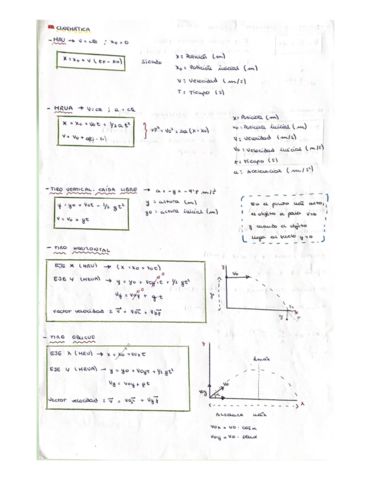 CINEMÁTICA
- MRU → v = cte ; x₀ = 0
x = x₀ + v (t - t₀)
siendo
x = Posición (m)
x₀ = Posición inicial (m)
v = Velocidad (m/s)
t = Tiempo (s)
- MRUA → a = cte
x = x₀ + v₀t + 1/2 at²
v = v₀ +
x = Posición (m)
x₀ = Posición inicial (m)
v = Velocidad (m/s)
v₀ = Velocidad inicial (m/s)
t = Tiempo (s)
a = Aceleración (m/s²)
- TIRO VERTICAL. CAÍDA LIBRE → a = -g = -9'8 m/s²
y = y₀ + v₀t - 1/2 gt²
v = v₀ gt
y = altura (m)
y₀ = altura inicial (m)
En el punto más alto,
el objeto se para v=0
y cuando el objeto
llega al suelo y=0
- TIRO HORIZONTAL
EJE X (MRU) → (x = x₀ + v₀t)
EJE Y (MRUA) → y = y₀ + v₀yt + 1/2 gt²
vy = v₀y + g·t
Vector velocidad :
y
v₀
x
- TIRO OBLICUO
EJE X (MRU) → x = x₀ + v₀xt
EJE Y (MRUA) → y = y₀ + v₀yt + 1/2 gt²
vy = v₀y + gt
Vector velocidad :
y
v₀y
v₀
x
Alcance máx
v₀x = v₀ · cosα
v₀y = v₀ · senα